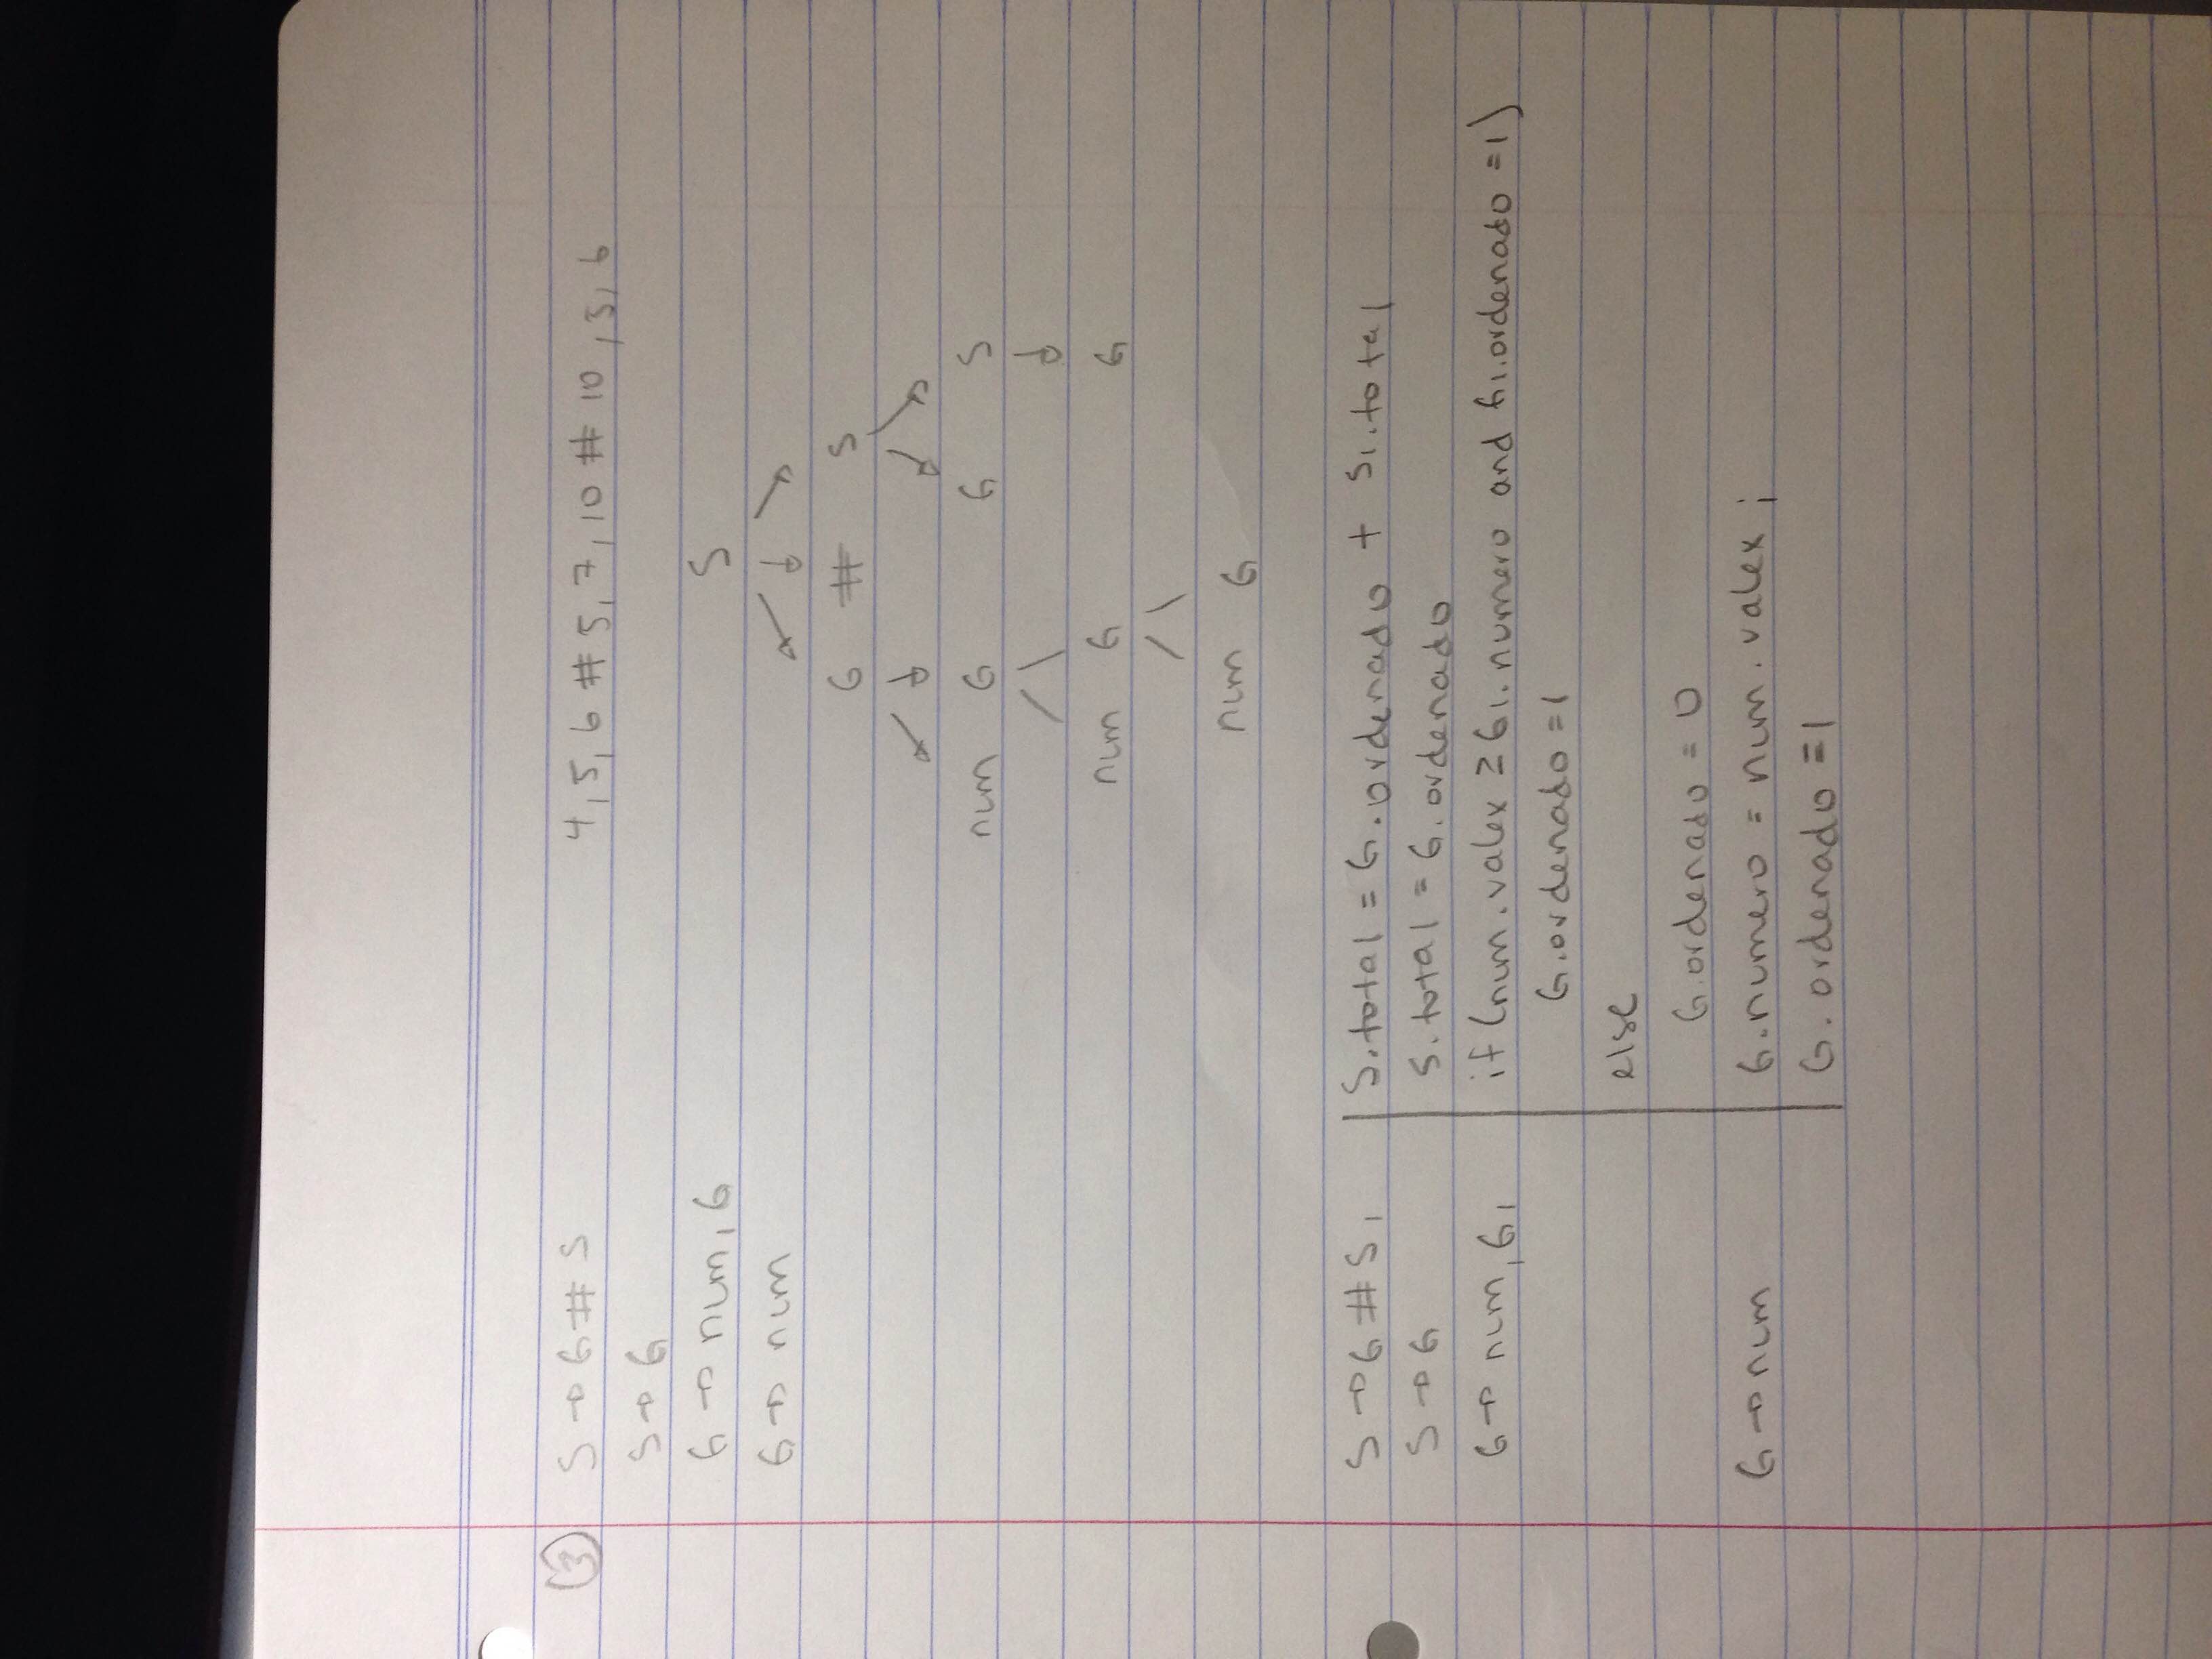 ③ S → G # S
4, 5, 6 # 5, 7, 10 # 10, 5, 6
S → G
G → num, G
G → num
S
G # S
num G G S
num G G
num G
S → G # S₁ | S.total = G.ordenado + S₁.total
S → G | S.total = G.ordenado
G → num, G₁ | if (num.valex ≥ G₁.numero and G₁.ordenado = 1)
G.ordenado = 1
else
G.ordenado = 0
G → num | G.numero = num.valex ;
G.ordenado = 1